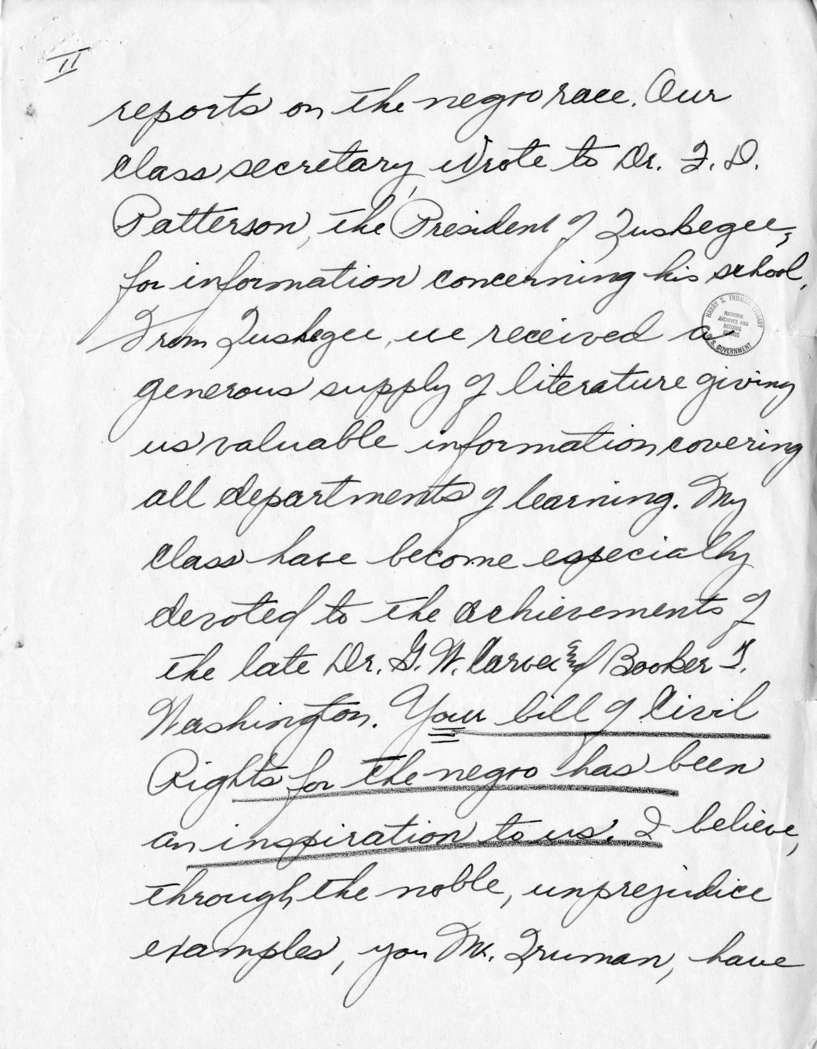 II
reports on the negro race. Our
class secretary, wrote to Dr. F. D.
Patterson, the President of Tuskegee,
for information concerning his school.
From Tuskegee, we received a
HARRY S. TRUMAN LIBRARY
NATIONAL
ARCHIVES AND
RECORDS
SERVICE
U.S. GOVERNMENT
generous supply of literature giving
us valuable information covering
all departments of learning. My
class have become especially
devoted to the achievements of
the late Dr. G. W. Carver & Booker T.
Washington. Your bill of Civil
Rights for the negro has been
an inspiration to us. I believe,
through the noble, unprejudice
examples, you Mr. Truman, have